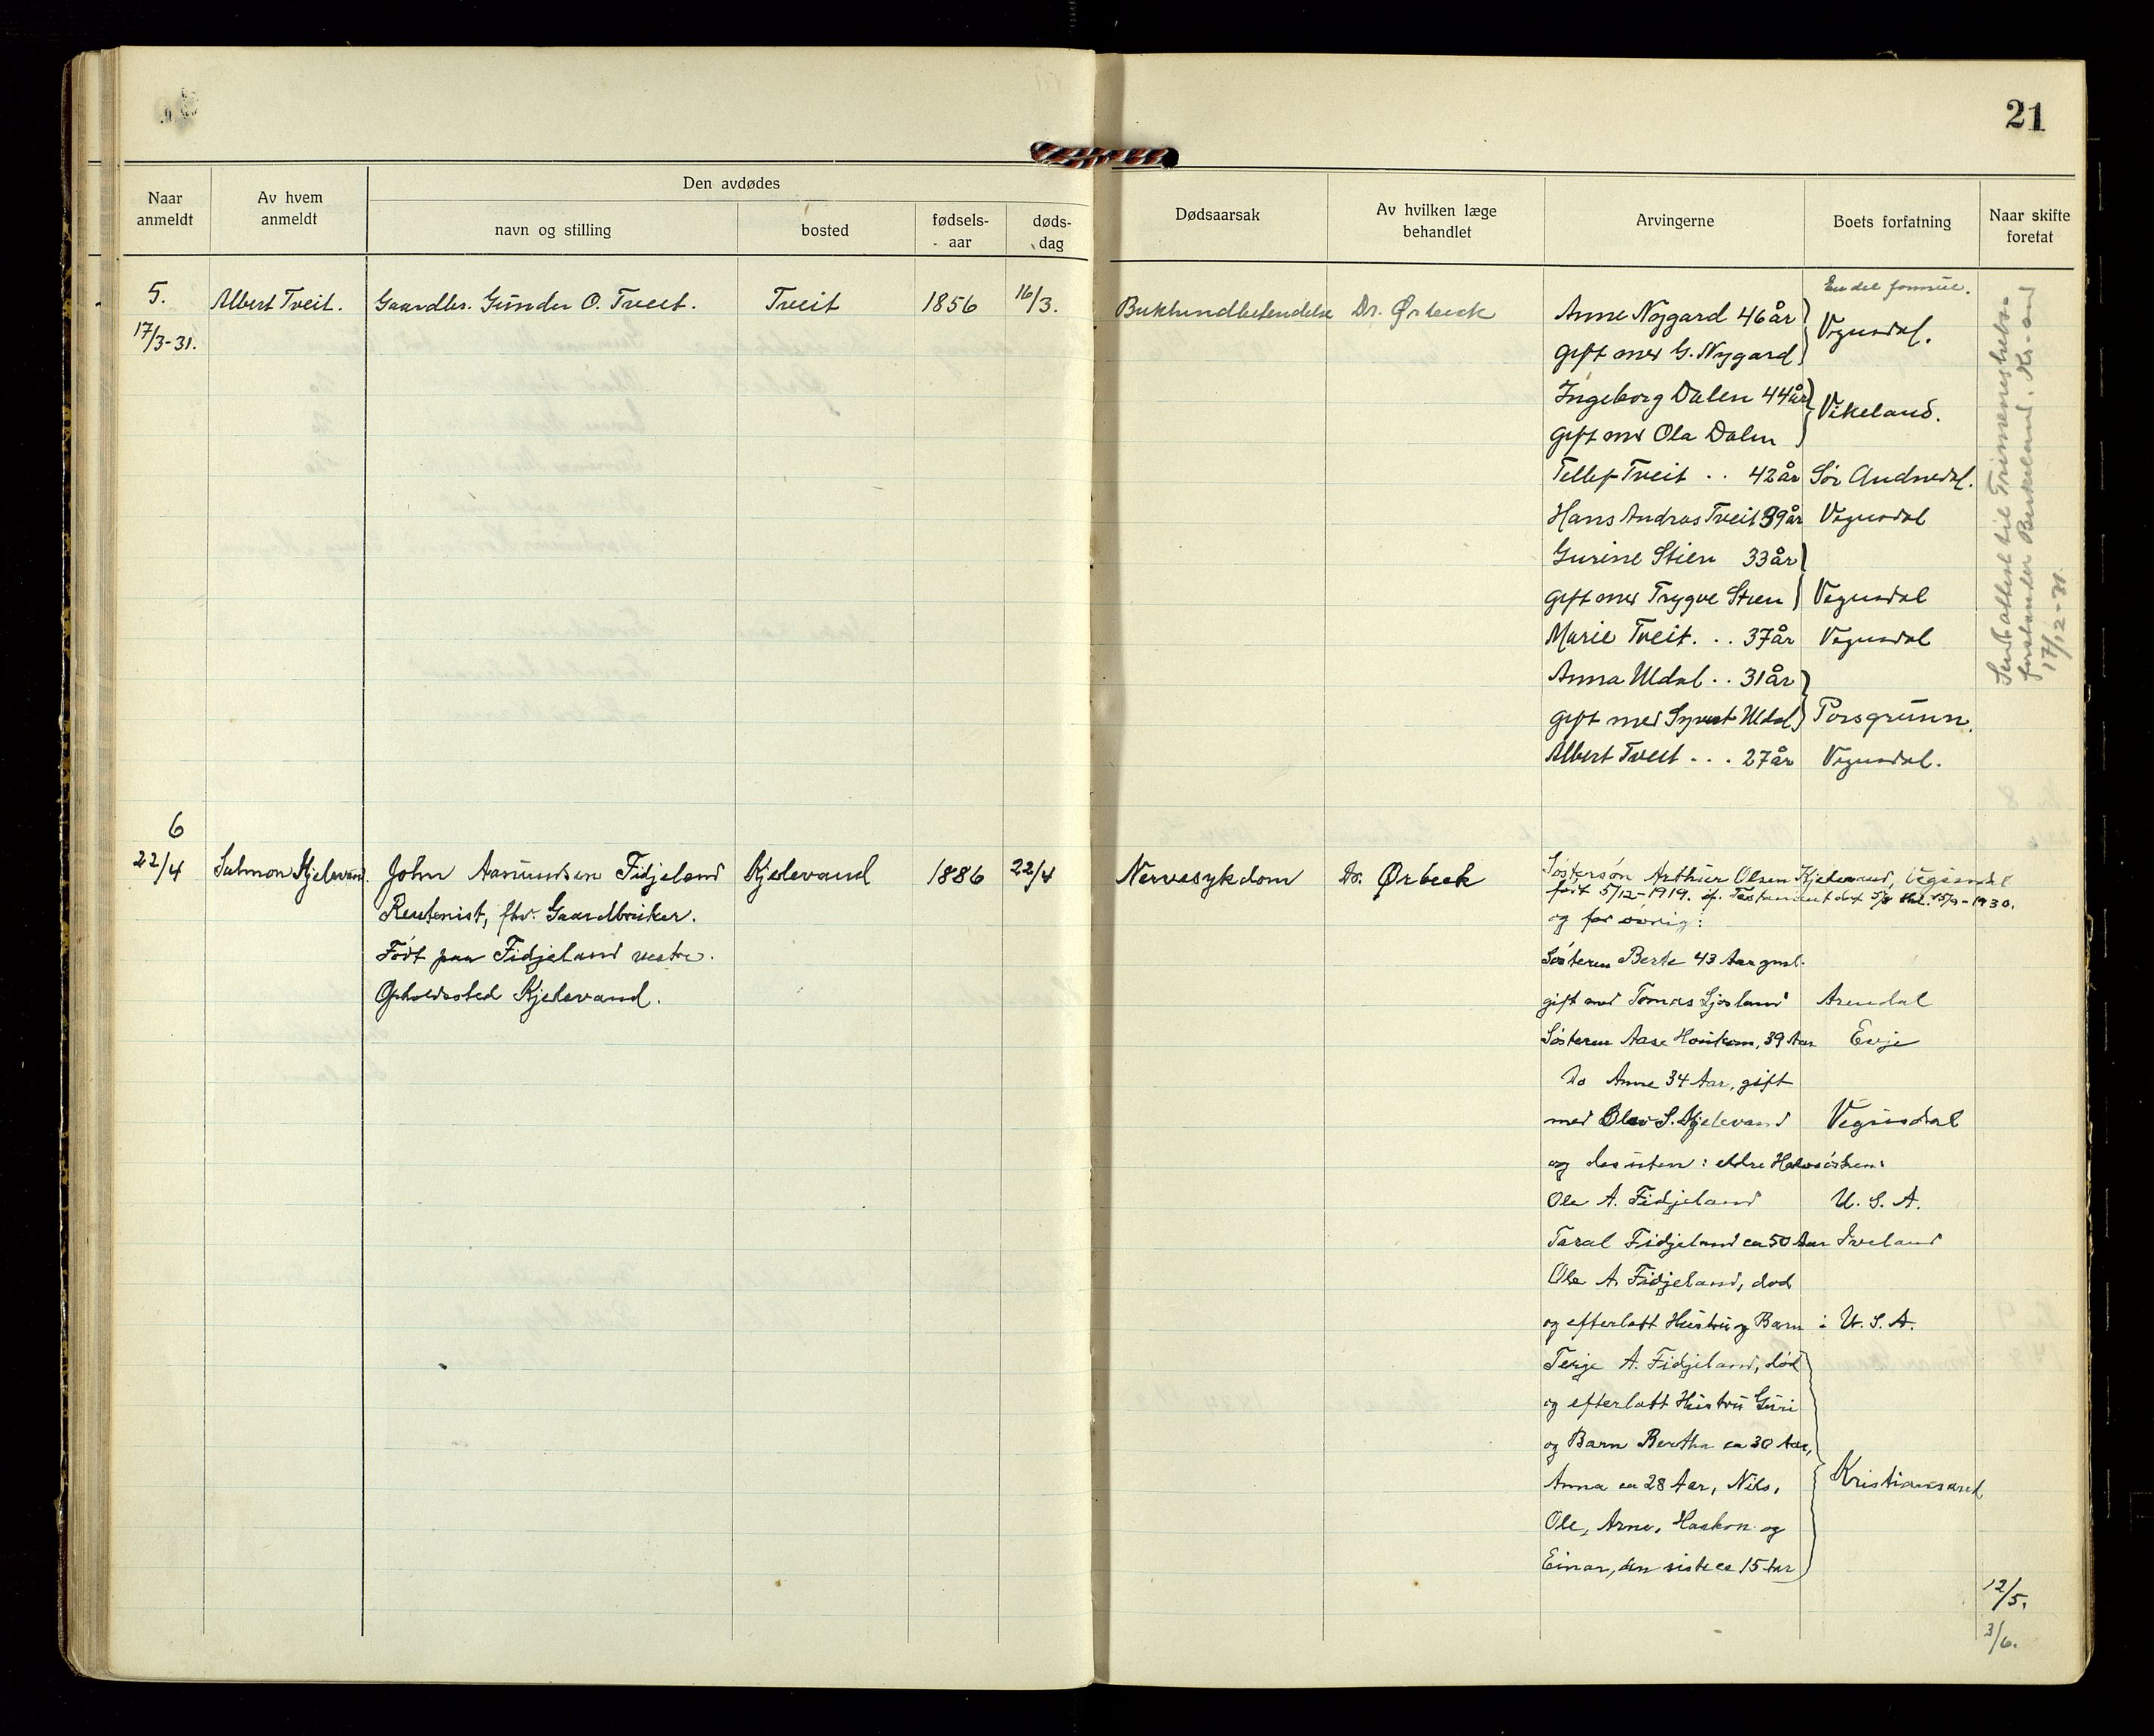 21
Naar anmeldt
Av hvem anmeldt
Den avdødes
navn og stilling
bosted
fødsels-aar
døds-dag
Dødsaarsak
Av hvilken læge behandlet
Arvingerne
Boets forfatning
Naar skifte foretat
5.
17/3-31.
Albert Tveit.
Gaardbr. Gunder O. Tveit.
Tveit
1856
16/3.
Bukhindbetendelse
Dr. Ørbeck
En del formue.
Anne Nygard 46 år
gift med G. Nygard
Vegusdal.
Ingeborg Dalen 44 år
gift med Ola Dalen
Vikeland.
Tellef Tveit .. 42 år Sör Audnedal.
Hans Andreas Tveit 39 år Vegusdal
Gurine Stien 33 år
gift med Trygve Stien Vegusdal
Marie Tveit. .. 37 år Vegusdal
Anna Uldal .. 31 år
gift med Syvert Uldal Porsgrunn.
Albert Tveit ... 27 år Vegusdal.
Send attest til
forstander Birkeland, Kr.sand
17/12-31.
6
22/4
Salmon Kjelevand.
John Aanundsen Fidjeland
Rentenist, fhv. Gaardbruker.
Födt paa Fidjeland vestre.
Opholdssted Kjelevand.
Kjelevand
1886
22/4
Nervesykdom
Dr. Ørbeck
Söstersön Arthur Olsen Kjelevand, Vegusdal
født 5/12-1919. jf. Testament
og for övrig:
Sösteren Berte 43 Aar gml.
gift med Tomas Ljosland Arendal
Sösteren Aase Hovikom, 39 Aar Evje
Do Anne 34 Aar, gift
med Olav S. Kjelevand Vegusdal
og desuten: eldre Halvsösken:
Ole A. Fidjeland U. S. A.
Taral Fidjeland ca 50 Aar Iveland
Ole A. Fidjeland, død
og efterlatt Hustru og Barn i U. S. A.
Terje A. Fidjeland, död
og efterlatt Hustru Guri
og Barn Bertha ca 30 Aar,
Anna ca 28 Aar, Nils,
Kristianssand
Ole, Arne, Haakon og
Einar, den siste ca 15 Aar
12/5.
3/6.